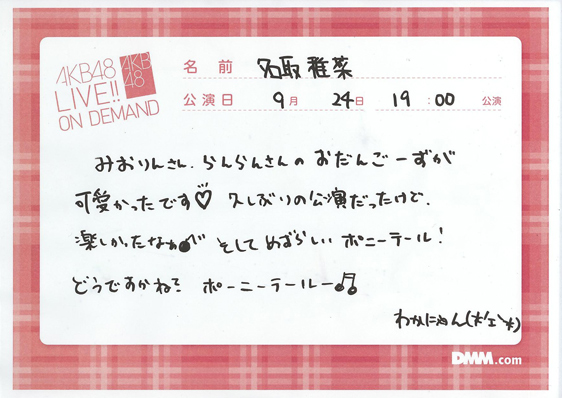 AKB48
LIVE!!
ON DEMAND
AKB
48
名前 名取 稚菜
公演日 9月 24日 19:00 公演
みおりんさん、らんらんさんの おだんごーずが
可愛かったです♡ 久しぶりの公演だったけど、
楽しかったなぁ そして めずらしい ポニーテール!
どうですかね? ポーニーテールー♫
わかにゃん(*'ェ'*)
DMM.com